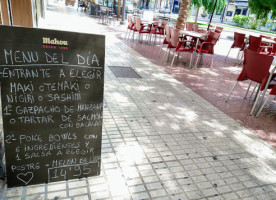 Mahou
MENU DEL DIA
ENTRANTE A ELEGIR
MAKI O TEMAKI O
NIGIRI O SASHIMI
1º GAZPACHO DE
O TARTAR DE SALMON
CON
2º POKE BOWLS CON
6 INGREDIENTES Y
1 SALSA A ELEGIR
POSTRE: MELON DE
14'95